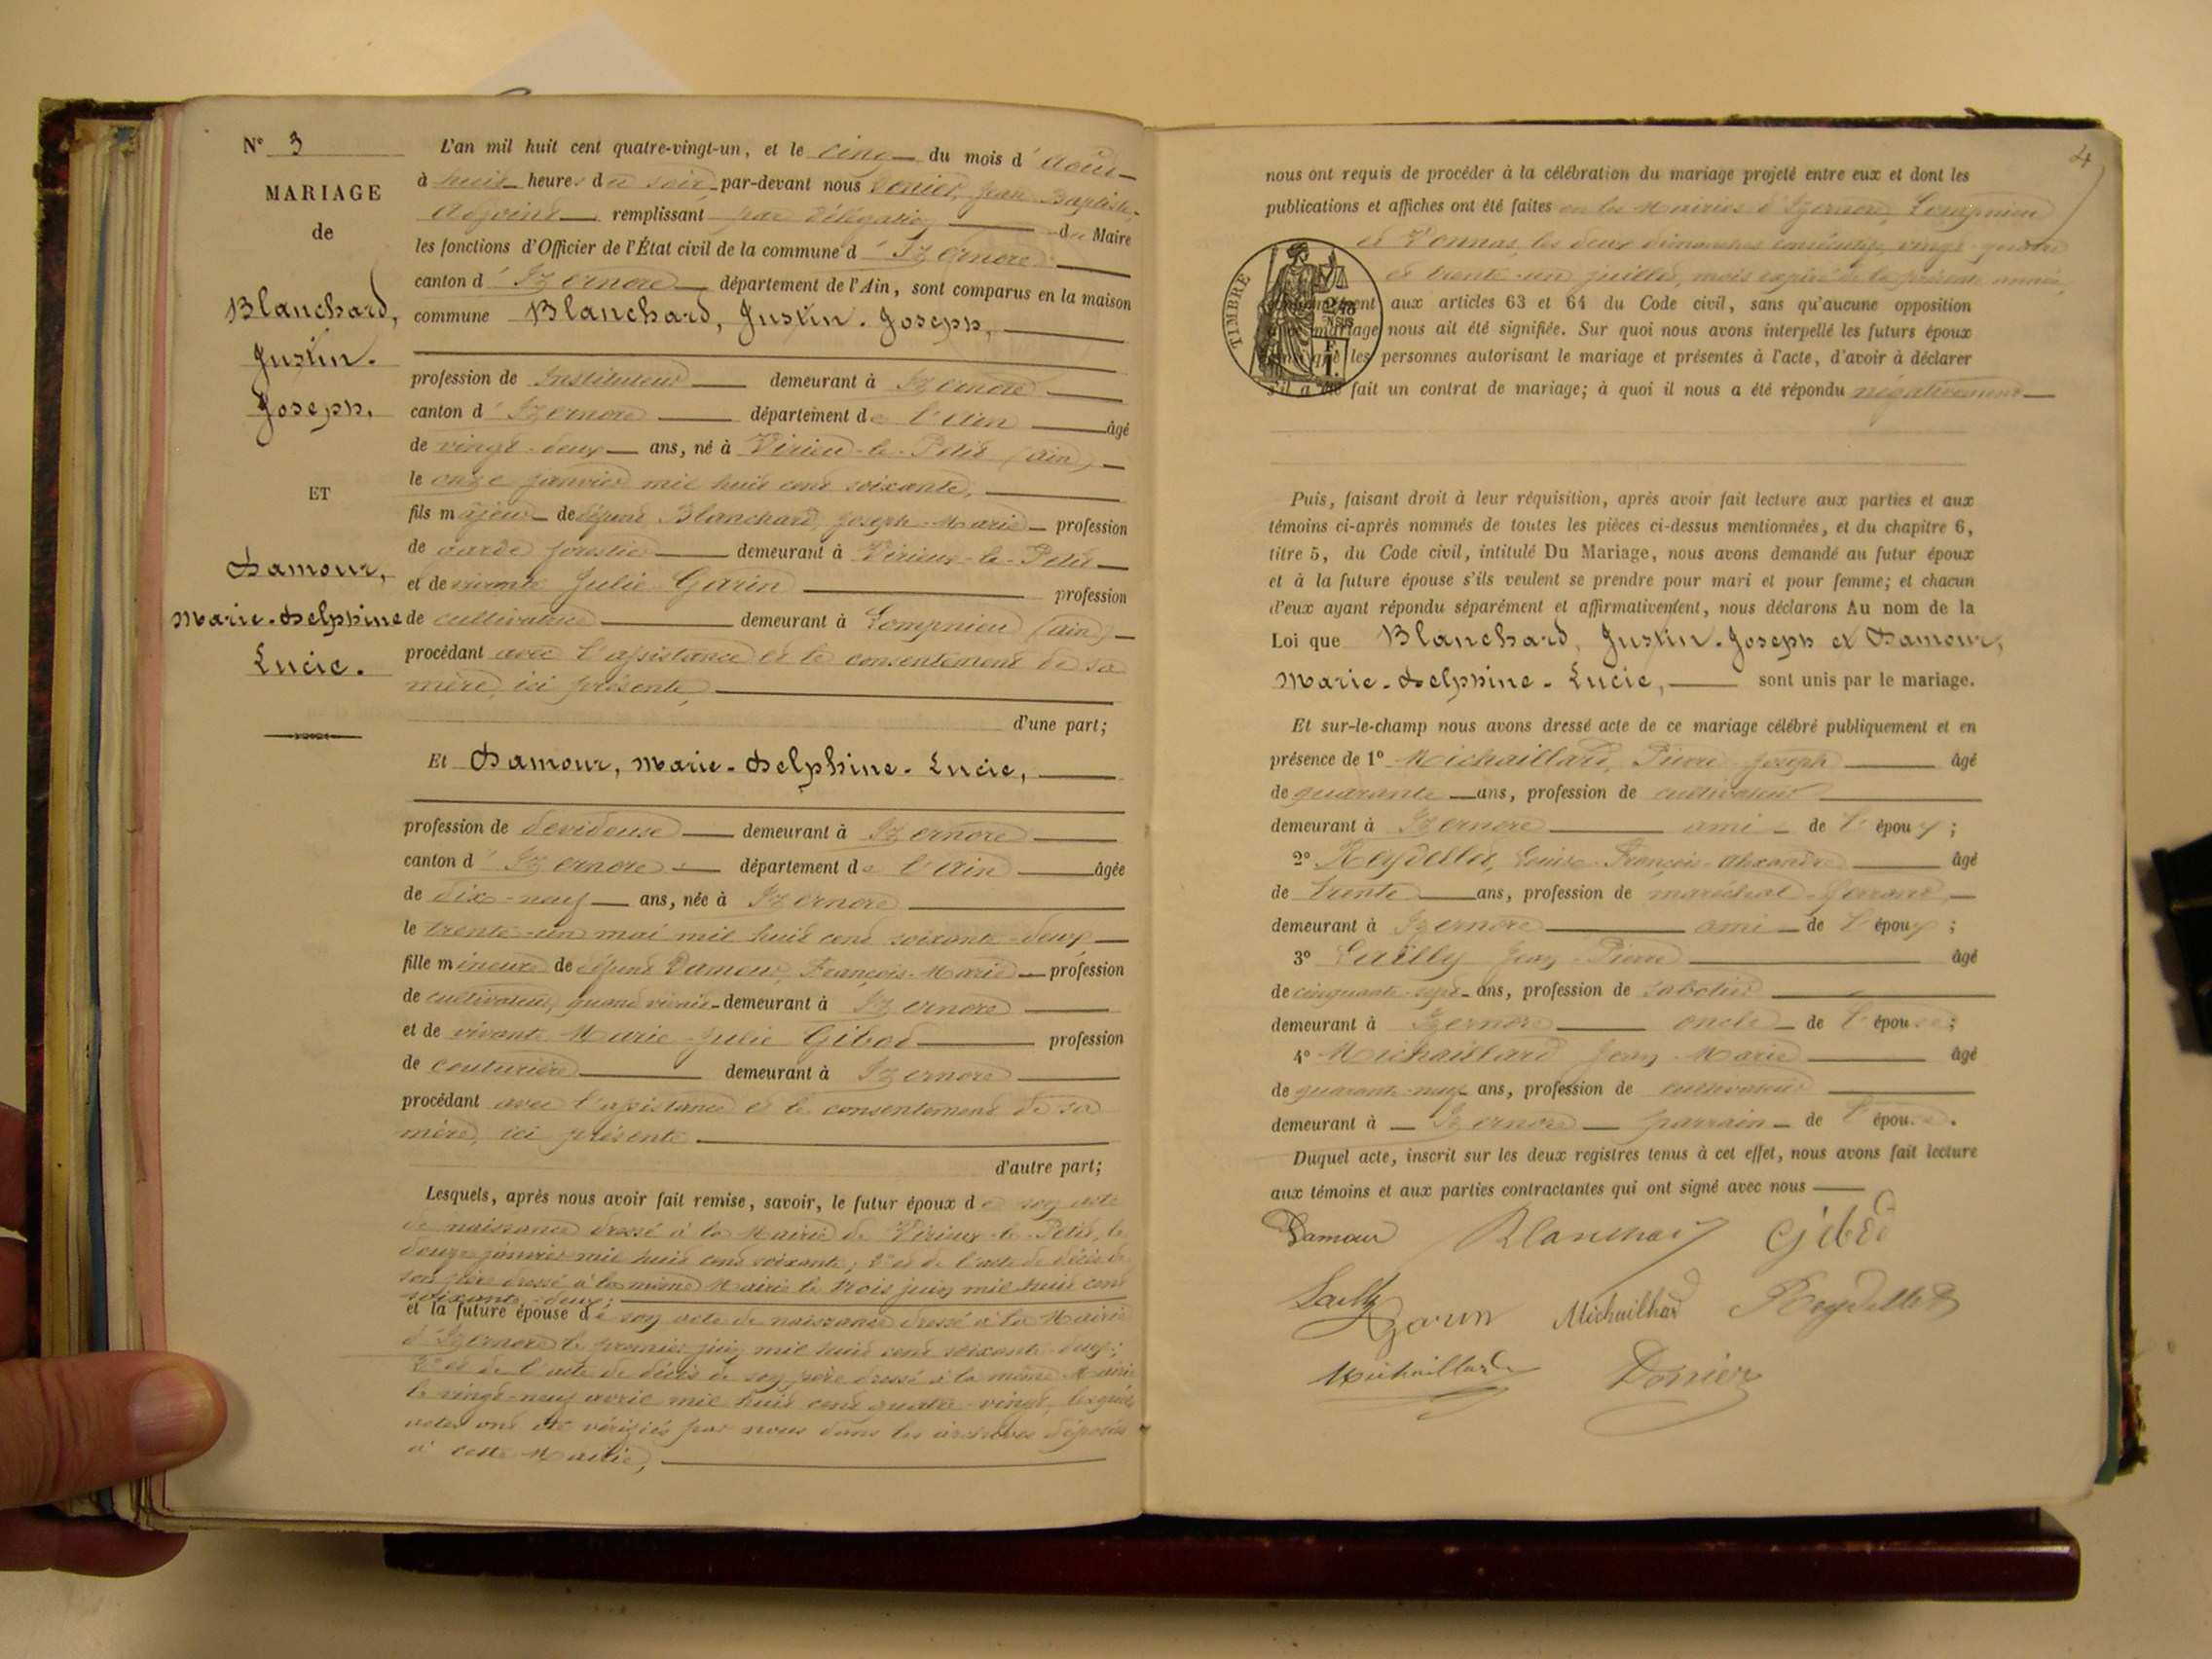 N° 3
MARIAGE
de
Blanchard,
Justin.
Joseph.
ET
Damour,
Marie-Delphine
Lucie.
L'an mil huit cent quatre-vingt-un, et le cinq du mois d'août
à huit heures du soir par-devant nous Jean Baptiste,
Adjoint remplissant par délégation du Maire
les fonctions d'Officier de l'État civil de la commune d'Izernore
canton d'Izernore département de l'Ain, sont comparus en la maison
commune Blanchard, Justin. Joseph,
profession de Instituteur demeurant à Izernore
canton d'Izernore département de l'Ain âgé
de vingt-deux ans, né à Virieu-le-Petit (Ain)
le onze janvier mil huit cent soixante,
fils majeur de défunt Blanchard, Joseph-Marie profession
de garde forestier demeurant à Virieux-le-Petit
et de vivante Julie Garin profession
de cultivatrice demeurant à Lompnieu (Ain)
procédant avec l'assistance et le consentement de sa
mère, ici présente,
d'une part;
Et Damour, Marie-Delphine-Lucie,
profession de devideuse demeurant à Izernore
canton d'Izernore département de l'Ain âgée
de dix-neuf ans, née à Izernore
le trente-un mai mil huit cent soixante-deux
fille mineure de défunt Damour, François-Marie profession
de cultivateur, quand vivait demeurant à Izernore
et de vivante Marie-Julie Gibod profession
de couturière demeurant à Izernore
procédant avec l'assistance et le consentement de sa
mère, ici présente
d'autre part;
Lesquels, après nous avoir fait remise, savoir, le futur époux de son acte
de naissance dressé à la Mairie de Virieux-le-Petit, le
douze janvier mil huit cent soixante; 2° et de l'acte de décès de
son père dressé à la même Mairie le trois juin mil huit cent
soixante-deux;
et la future épouse de son acte de naissance dressé à la Mairie
d'Izernore le premier juin mil huit cent soixante-deux;
2° et de l'acte de décès de son père dressé à la même Mairie
le vingt-neuf avril mil huit cent quatre-vingt, lesquels
actes ont été vérifiés par nous dans les archives déposées
à cette Mairie,
4
nous ont requis de procéder à la célébration du mariage projeté entre eux et dont les
publications et affiches ont été faites en les Mairies d'Izernore, Lompnieu
et Vonnas, les deux dimanches consécutifs, vingt-quatre
et trente-un juillet, mois expiré de la présente année,
TIMBRE
conformément aux articles 63 et 64 du Code civil, sans qu'aucune opposition
mariage nous ait été signifiée. Sur quoi nous avons interpellé les futurs époux
les personnes autorisant le mariage et présentes à l'acte, d'avoir à déclarer
s'il a été fait un contrat de mariage; à quoi il nous a été répondu négativement
Puis, faisant droit à leur réquisition, après avoir fait lecture aux parties et aux
témoins ci-après nommés de toutes les pièces ci-dessus mentionnées, et du chapitre 6,
titre 5, du Code civil, intitulé Du Mariage, nous avons demandé au futur époux
et à la future épouse s'ils veulent se prendre pour mari et pour femme; et chacun
d'eux ayant répondu séparément et affirmativement, nous déclarons Au nom de la
Loi que Blanchard, Justin-Joseph et Damour,
Marie-Delphine-Lucie, sont unis par le mariage.
Et sur-le-champ nous avons dressé acte de ce mariage célébré publiquement et en
présence de 1° Michaillard, Pierre Joseph âgé
de quarante ans, profession de cultivateur
demeurant à Izernore ami de l'époux;
2° Reydellet, Louis-François-Alexandre âgé
de trente ans, profession de maréchal-ferrant,
demeurant à Izernore ami de l'époux;
3° Lailly Jean-Pierre âgé
de cinquante-sept ans, profession de sabotier
demeurant à Izernore oncle de l'épouse;
4° Michaillard Jean-Marie âgé
de quarante-neuf ans, profession de cultivateur
demeurant à Izernore parrain de l'épouse.
Duquel acte, inscrit sur les deux registres tenus à cet effet, nous avons fait lecture
aux témoins et aux parties contractantes qui ont signé avec nous
Damour Blanchard Gibod
Lailly
Garin Michaillard Reydellet
Michaillard